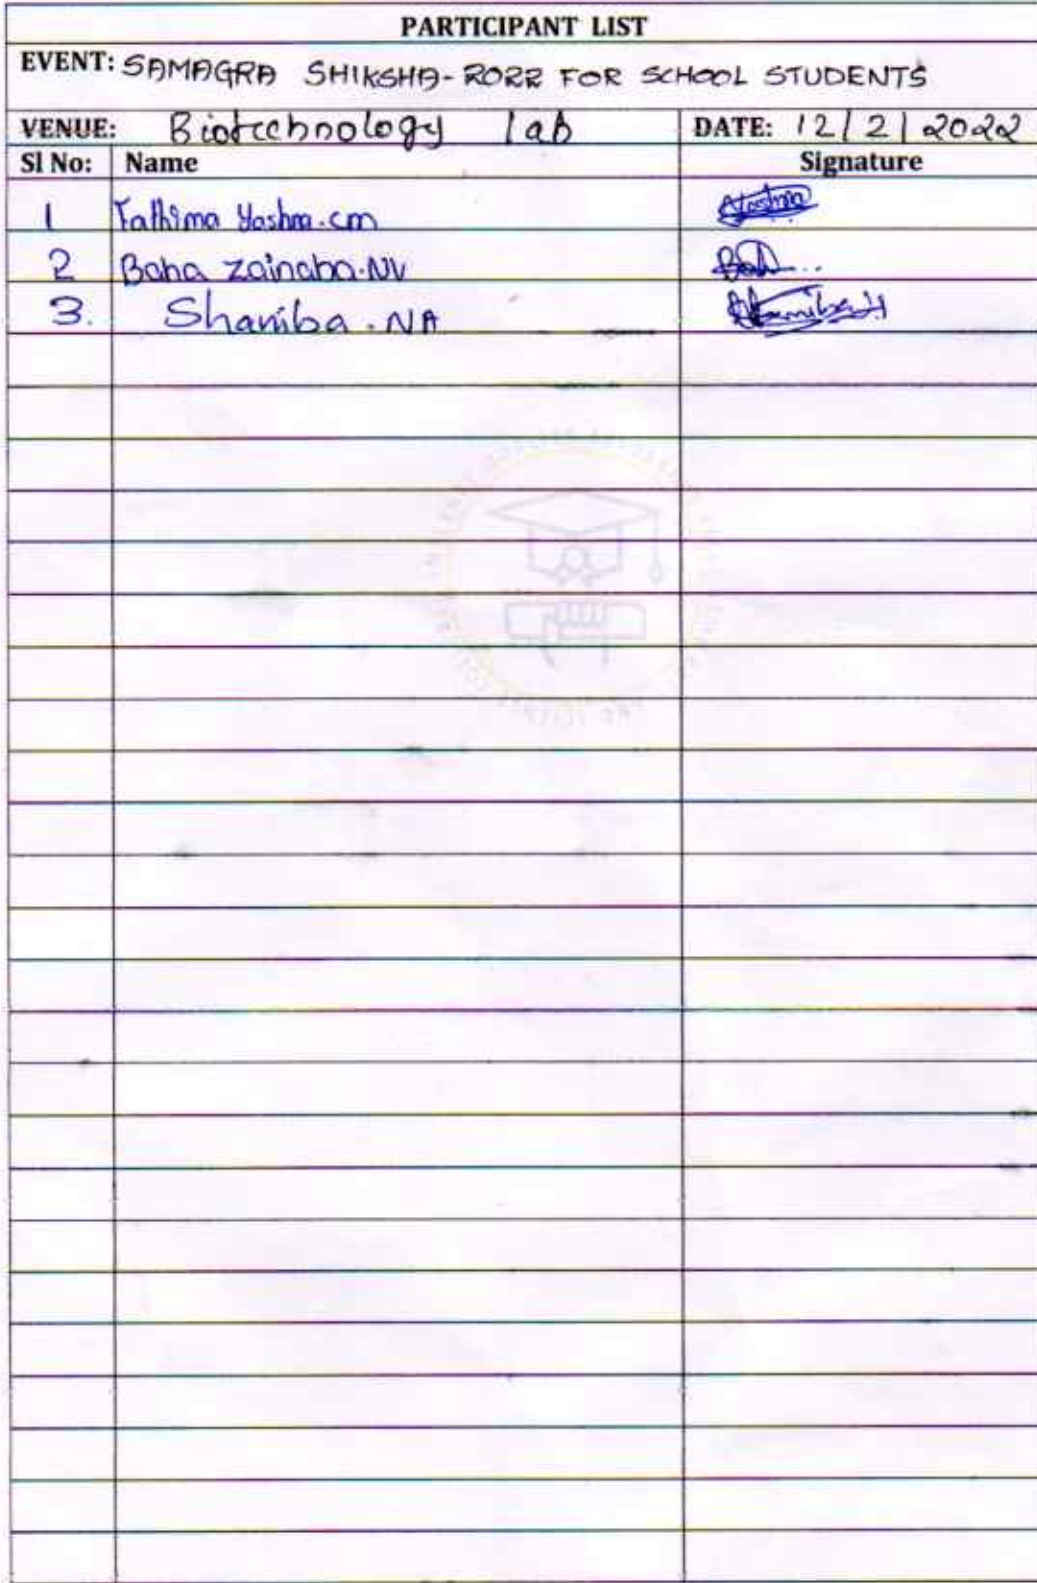 PARTICIPANT LIST
EVENT: SAMAGRA SHIKSHA-2022 FOR SCHOOL STUDENTS
VENUE: Biotechnology lab DATE: 12/2/2022
Sl No: Name Signature
1 Fathima Yoshna.cm
2 Baha zainaba.NV
3. Shaniba.NA